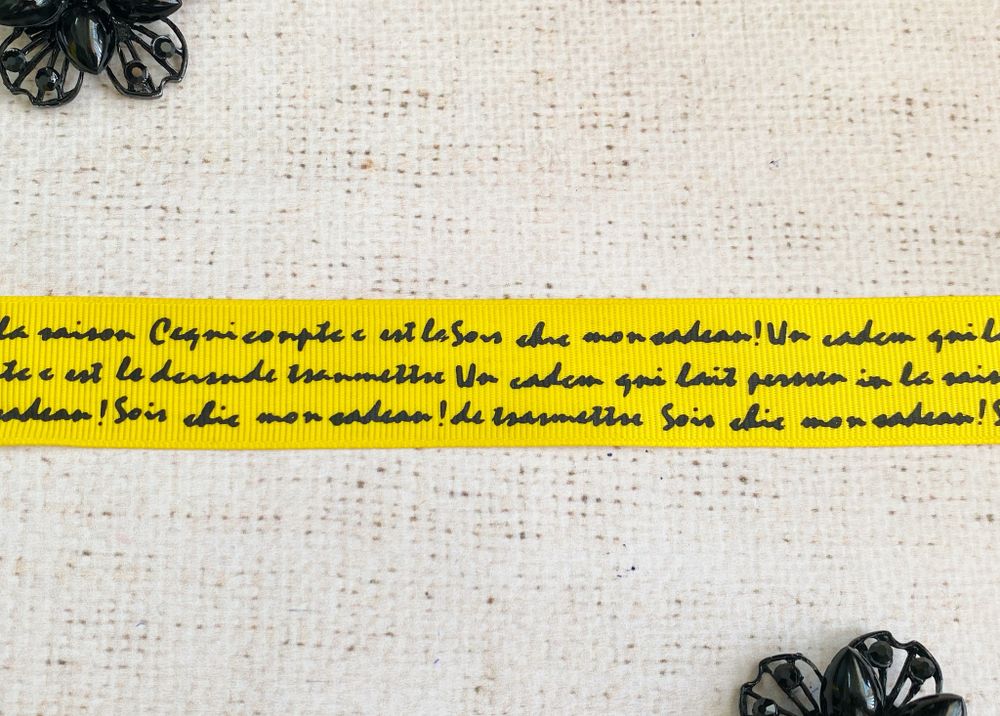 la raison Cequi compte c est le Sois chic mon cadeau! Un cadeau qui l
te c est le derande transmettre Un cadeau qui lait perssen in la rais
cadeau! Sois chic mon cadeau! de trasmettre Sois chic mon cadeau! S